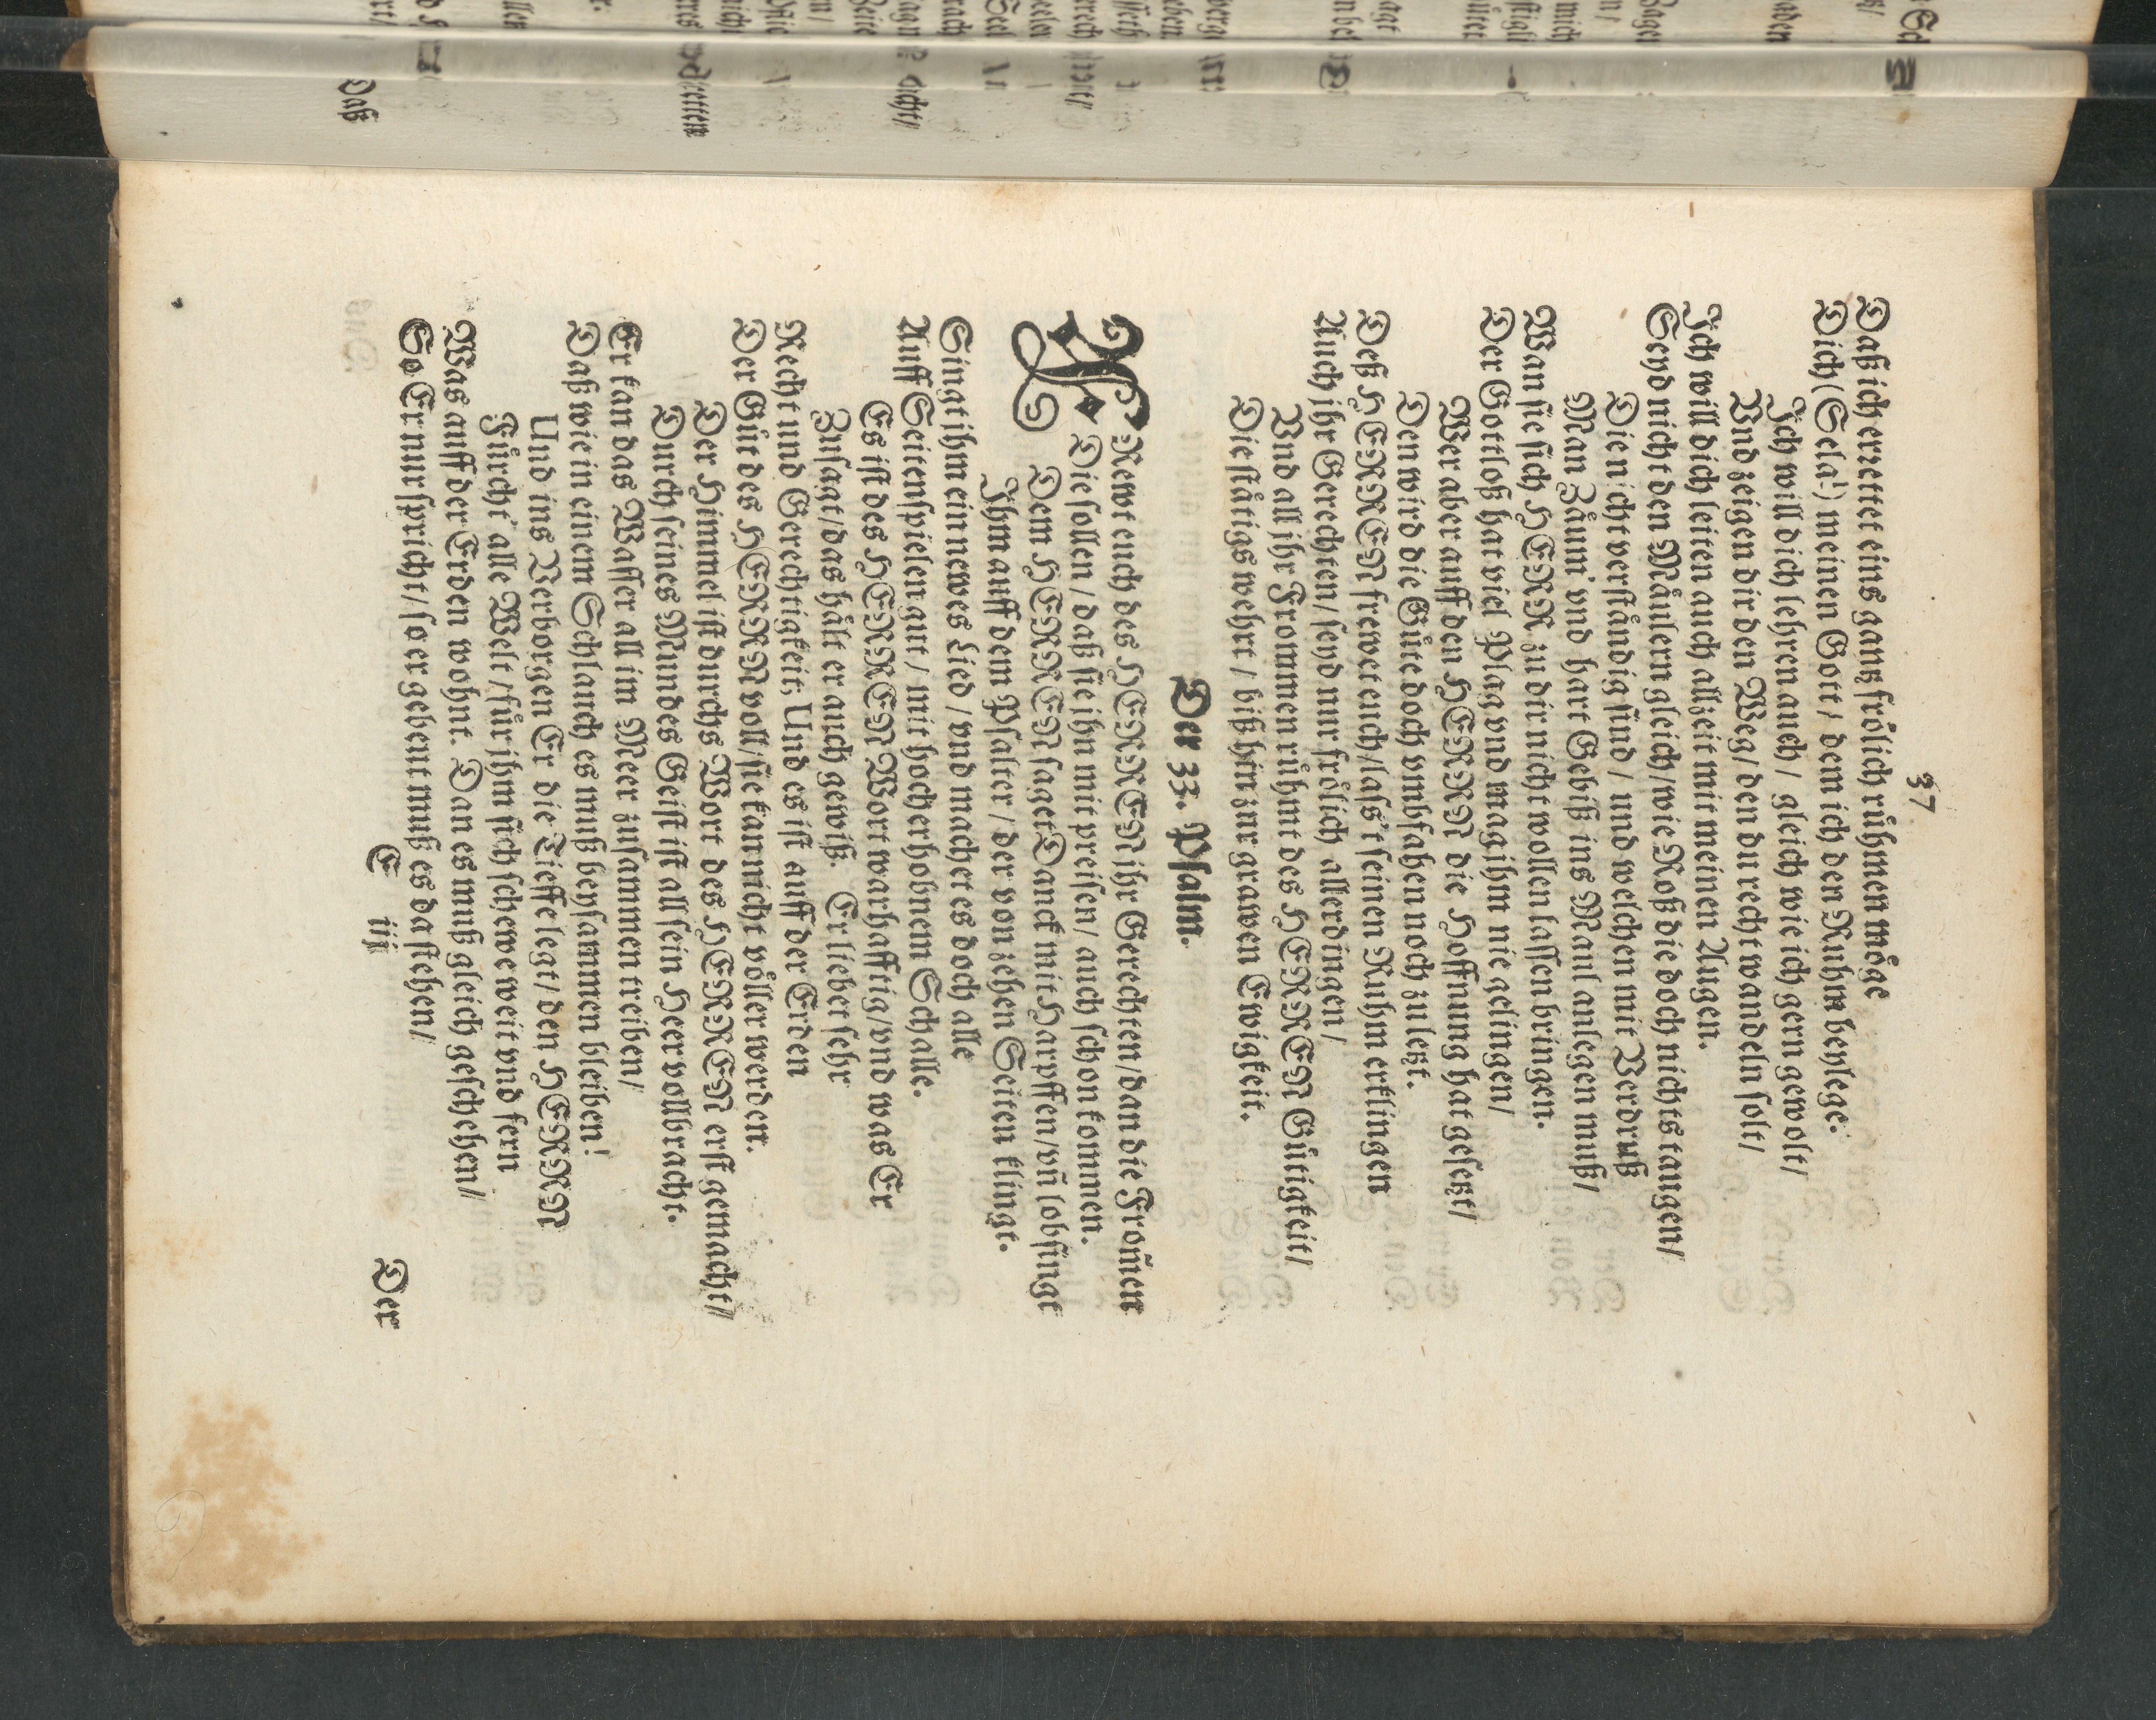 37
Daß ich errettet eins gantz frölich rühmen möge
Dich (Sela!) meinen Gott / dem ich den Ruhm beylege.
Ich will dich lehren auch / gleich wie ich gern gewolt /
Vnd zeigen dir den Weg / den du recht wandeln solt /
Ich will dich leiten auch allzeit mit meinen Augen.
Seyd nicht den Mäulern gleich / wie Roß die doch nichts taugen /
Die nicht verständig sind / und welchen mit Verdruß
Man Zäum' vnd hart Gebiß ins Maul anlegen muß /
Wan sie sich HERR zu dir nicht wollen lassen bringen.
Der Gottloß hat viel Plag vnd mag ihm nie gelingen /
Wer aber auff den HERRN die Hoffnung hat gesetzt /
Den wird die Güte doch vmbfahen noch zu letzt.
Deß HERREN frewet euch / lass't seinen Ruhm erklingen
Auch ihr Gerechten / seyd nur frölich allerdingen /
Vnd all ihr Frommen rühmt des HERREN Gütigkeit /
Die stätigs wehrt / biß hin zur grawen Ewigkeit.
Der 33. Psalm.
FRewt euch des HERREN ihr Gerechten / dan die From̃en
Die sollen / daß sie ihn mit preisen / auch schon kommen.
Dem HERREN saget Danck mit Harpffen / vñ lobsingt
Ihm auff dem Psalter / der von zehen Seiten klingt.
Singt ihm ein newes Lied / vnd machet es doch alle
Auff Seitenspielen gut / mit hocherhobnem Schalle.
Es ist des HERREN Wort warhafftig / vnd was Er
Zusagt / das hält er auch gewiß. Er liebet sehr
Recht und Gerechtigkeit: Und es ist auff der Erden
Der Güt des HERRN voll / sie kan nicht völler werden.
Der Himmel ist durchs Wort des HERREN erst gemacht /
Durch seines Mundes Geist ist all sein Heer vollbracht.
Er kan das Wasser all im Meer zusammen treiben /
Daß wie in einem Schlauch es muß beysammen bleiben!
Und ins Verborgen Er die Tieffe legt / den HERRN
Fürcht' alle Welt / für ihm sich schewe weit vnd fern
Was auff der Erden wohnt. Dan es muß gleich geschehen /
So Er nur spricht / so er gebeut muß es da stehen /
E iij
Der
Daß